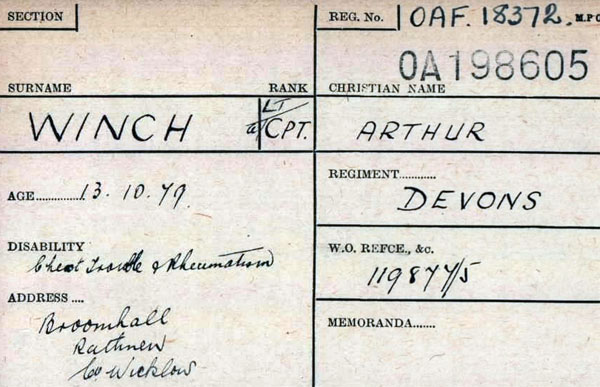 SECTION
REG. No. OAF. 18372. M.P.O
OA198605
SURNAME RANK CHRISTIAN NAME
WINCH LT/a/CPT. ARTHUR
AGE............... 13. 10. 79.
REGIMENT............
DEVONS
DISABILITY
Chest Trouble & Rheumatism
W.O. REFCE., &c.
119877/5
ADDRESS ....
Broomhall
Rathnew
Co Wicklow
MEMORANDA.......